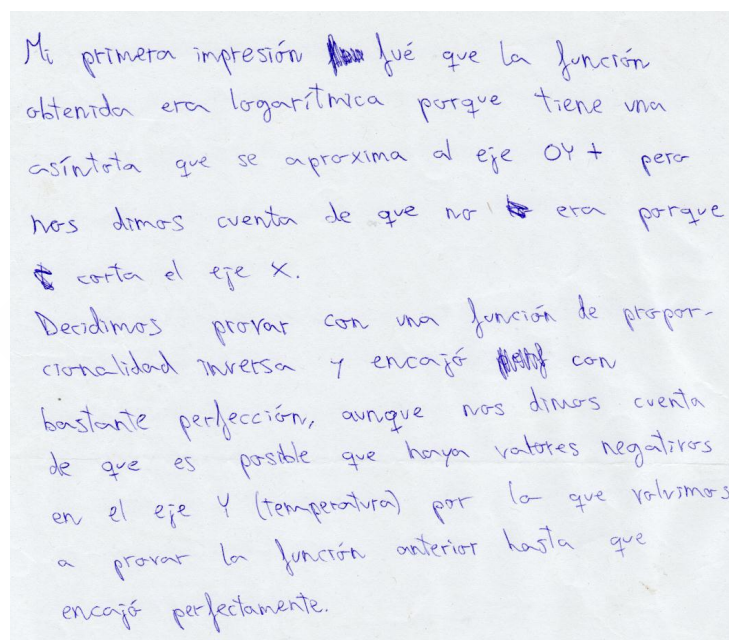 Mi primera impresión fué que la función
obtenida era logarítmica porque tiene una
asíntota que se aproxima al eje OY + pero
nos dimos cuenta de que no era porque
corta el eje X.
Decidimos provar con una función de propor-
cionalidad inversa y encajó con
bastante perfección, aunque nos dimos cuenta
de que es posible que haya valores negativos
en el eje Y (temperatura) por lo que volvimos
a provar la función anterior hasta que
encajó perfectamente.